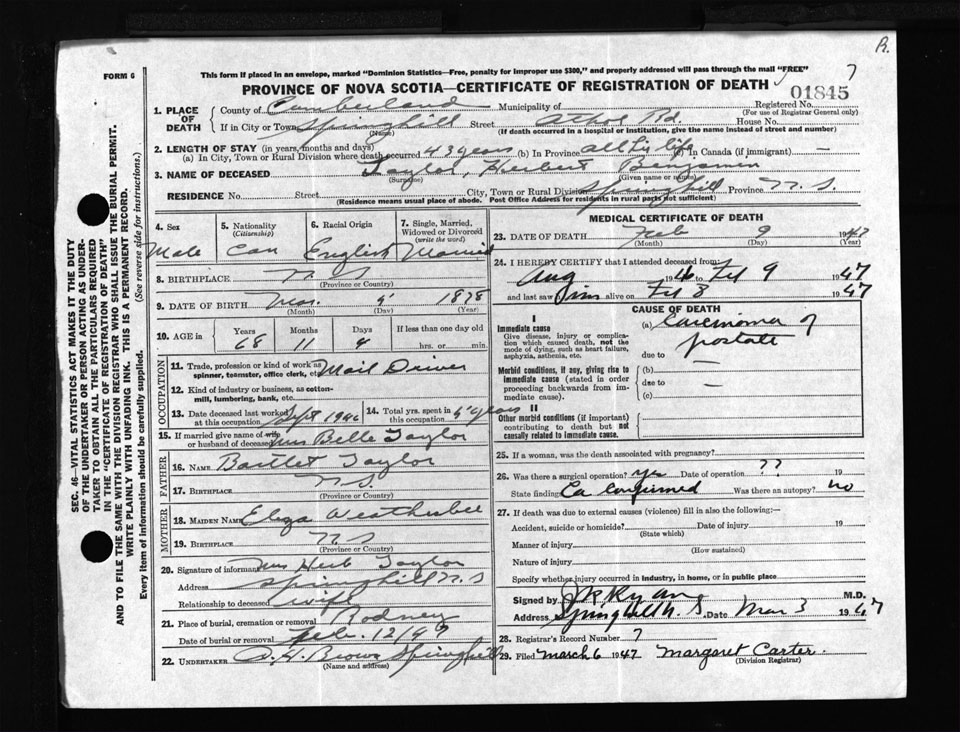 R.
FORM 6
This form if placed in an envelope, marked "Dominion Statistics—Free, penalty for improper use $300," and properly addressed will pass through the mail "FREE"
7
PROVINCE OF NOVA SCOTIA—CERTIFICATE OF REGISTRATION OF DEATH
01845
1. PLACE OF DEATH
County of Cumberland Municipality of Registered No.
(For use of Registrar General only)
If in City or Town Springhill Street Athol Rd. House No.
(Name) (If death occurred in a hospital or institution, give the name instead of street and number)
2. LENGTH OF STAY (in years, months and days)
(a) In City, Town or Rural Division where death occurred 43 years (b) In Province all his life (c) In Canada (if immigrant) —
3. NAME OF DECEASED Taylor, Herbert Benjamin
(Surname) (Given name or names)
RESIDENCE No. Street City, Town or Rural Division Springhill Province N. S.
(Residence means usual place of abode. Post Office Address for residents in rural parts not sufficient)
4. Sex
Male
5. Nationality (Citizenship)
Can
6. Racial Origin
English
7. Single, Married, Widowed or Divorced (write the word)
Married
8. BIRTHPLACE N. S
(Province or Country)
9. DATE OF BIRTH Mar. 5 1878
(Month) (Day) (Year)
10. AGE in Years Months Days If less than one day old
68 11 4 hrs. or min.
OCCUPATION
11. Trade, profession or kind of work as spinner, teamster, office clerk, etc. Mail Driver
12. Kind of industry or business, as cotton-mill, lumbering, bank, etc.
13. Date deceased last worked at this occupation Sept 1946
14. Total yrs. spent in this occupation years
15. If married give name of wife or husband of deceased Mrs Belle Taylor
FATHER
16. NAME Bartlet Taylor
17. BIRTHPLACE N. S
(Province or Country)
MOTHER
18. MAIDEN NAME Eliza Weatherbee
19. BIRTHPLACE N. S
(Province or Country)
20. Signature of informant Mrs Herb Taylor
Address Springhill N. S
Relationship to deceased wife
21. Place of burial, cremation or removal Rodney
Date of burial or removal Feb. 12/47
22. UNDERTAKER A. H. Brown Springhill
(Name and address)
MEDICAL CERTIFICATE OF DEATH
23. DATE OF DEATH Feb 9 1947
(Month) (Day) (Year)
24. I HEREBY CERTIFY that I attended deceased from:
Aug 1946 to Feb 9 1947
and last saw him alive on Feb 8 1947
CAUSE OF DEATH
I
Immediate cause
Give disease, injury or complication which caused death, not the mode of dying, such as heart failure, asphyxia, asthenia, etc.
(a) Carcinoma of postate
due to —
Morbid conditions, if any, giving rise to immediate cause (stated in order proceeding backwards from immediate cause).
(b)
due to —
(c)
II
Other morbid conditions (if important) contributing to death but not causally related to immediate cause.
25. If a woman, was the death associated with pregnancy?
26. Was there a surgical operation? yes Date of operation ?? 19
State finding Ca Confirmed Was there an autopsy? no
27. If death was due to external causes (violence) fill in also the following:—
Accident, suicide or homicide? Date of injury 19
(State which)
Manner of injury
(How sustained)
Nature of injury
Specify whether injury occurred in industry, in home, or in public place
Signed by J R Ryan M.D.
Address Springhill N. S. Date Mar 3 1947
28. Registrar's Record Number 7
29. Filed March 6 1947 Margaret Carter.
(Division Registrar)
SEC. 46—VITAL STATISTICS ACT MAKES IT THE DUTY OF THE UNDERTAKER OR PERSON ACTING AS UNDERTAKER TO OBTAIN ALL THE PARTICULARS REQUIRED IN THE "CERTIFICATE OF REGISTRATION OF DEATH" AND TO FILE THE SAME WITH THE DIVISION REGISTRAR WHO SHALL ISSUE THE BURIAL PERMIT.
WRITE PLAINLY WITH UNFADING INK. THIS IS A PERMANENT RECORD.
Every item of information should be carefully supplied. (See reverse side for instructions.)